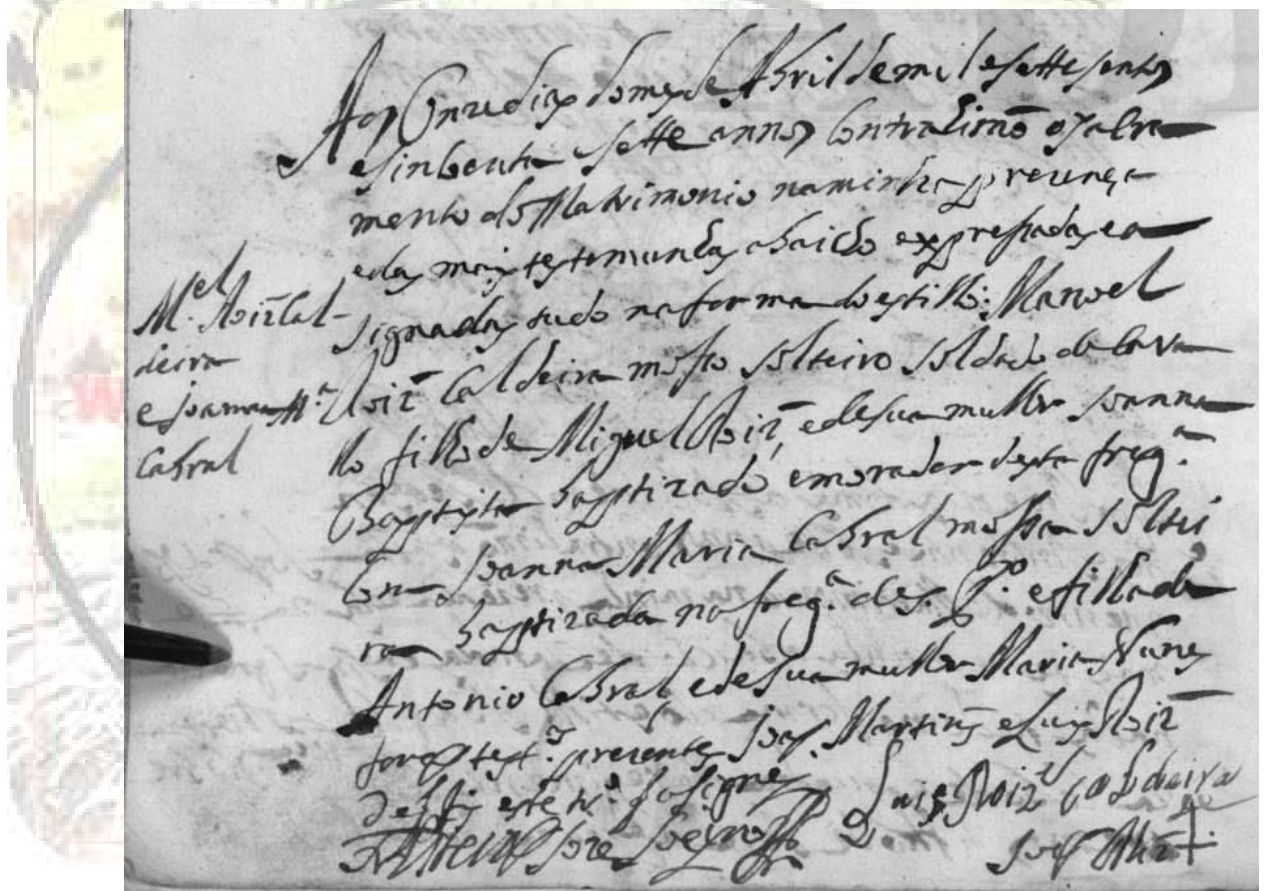 M.el Roiz Cal-
deira
e Joanna M.a
Cabral
Aos Onze dias do mes de Abril de mil e sette sentos
e sincoenta e sette annos Contrahirão o Sacra
mento do Matrimonio na minha prezença
e das mais testemunhas abaicho expressadas e a
signadas tudo na forma do estillo: Manoel
Roiz Caldeira mosso solteiro soldado de Cava
llo filho de Miguel Roiz, e de sua mulher Joanna
Baptista baptizado e morador desta freg.a
Com Joanna Maria Cabral mossa soltei
ra baptizada na freg.a de S. P.o e filha de
Antonio Cabral, e de sua mulher Maria Nunes
forão test.as prezentes João Martins e Luis Roiz
de q fis este
Luis Roiz Caldeira